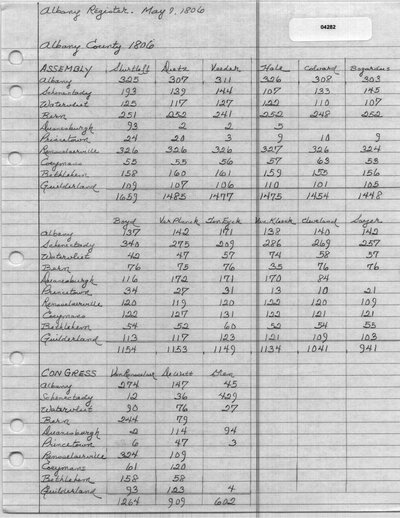 Albany Register. May 9, 1806
04282
Albany County 1806
ASSEMBLY Shirtleff Dietz Veeder Hale Colvard Bogardus
Albany 325 307 311 326 308 303
Schenectady 193 139 144 107 133 145
Watervliet 125 117 127 122 110 107
Bern 251 252 241 252 248 252
Duanesburgh 93 2 2 5
Princetown 24 20 3 9 10 9
Rensselaerville 326 326 326 327 326 324
Coeymans 55 55 56 57 63 53
Bethlehem 158 160 161 159 155 156
Guilderland 109 107 106 110 101 105
1659 1485 1477 1475 1454 1448
Boyd Ver Planck Ten Eyck Van Kleek Cleveland Sager
Albany 137 142 171 138 140 142
Schenectady 340 275 209 286 269 257
Watervliet 42 47 57 74 58 57
Bern 76 75 76 35 76 76
Duanesburgh 116 172 171 170 84
Princetown 34 27 31 13 10 21
Rensselaerville 120 119 120 122 120 109
Coeymans 122 127 131 122 121 121
Bethlehem 54 52 60 52 54 55
Guilderland 113 117 123 121 109 103
1154 1153 1149 1134 1041 941
CONGRESS Van Rensselaer De Witt
Albany 274 147 45
Schenectady 12 36 429
Watervliet 90 76 27
Bern 244 79
Duanesburgh 2 114 94
Princetown 6 47 3
Rensselaerville 324 109
Coeymans 61 120
Bethlehem 158 58
Guilderland 93 123 4
1264 909 602